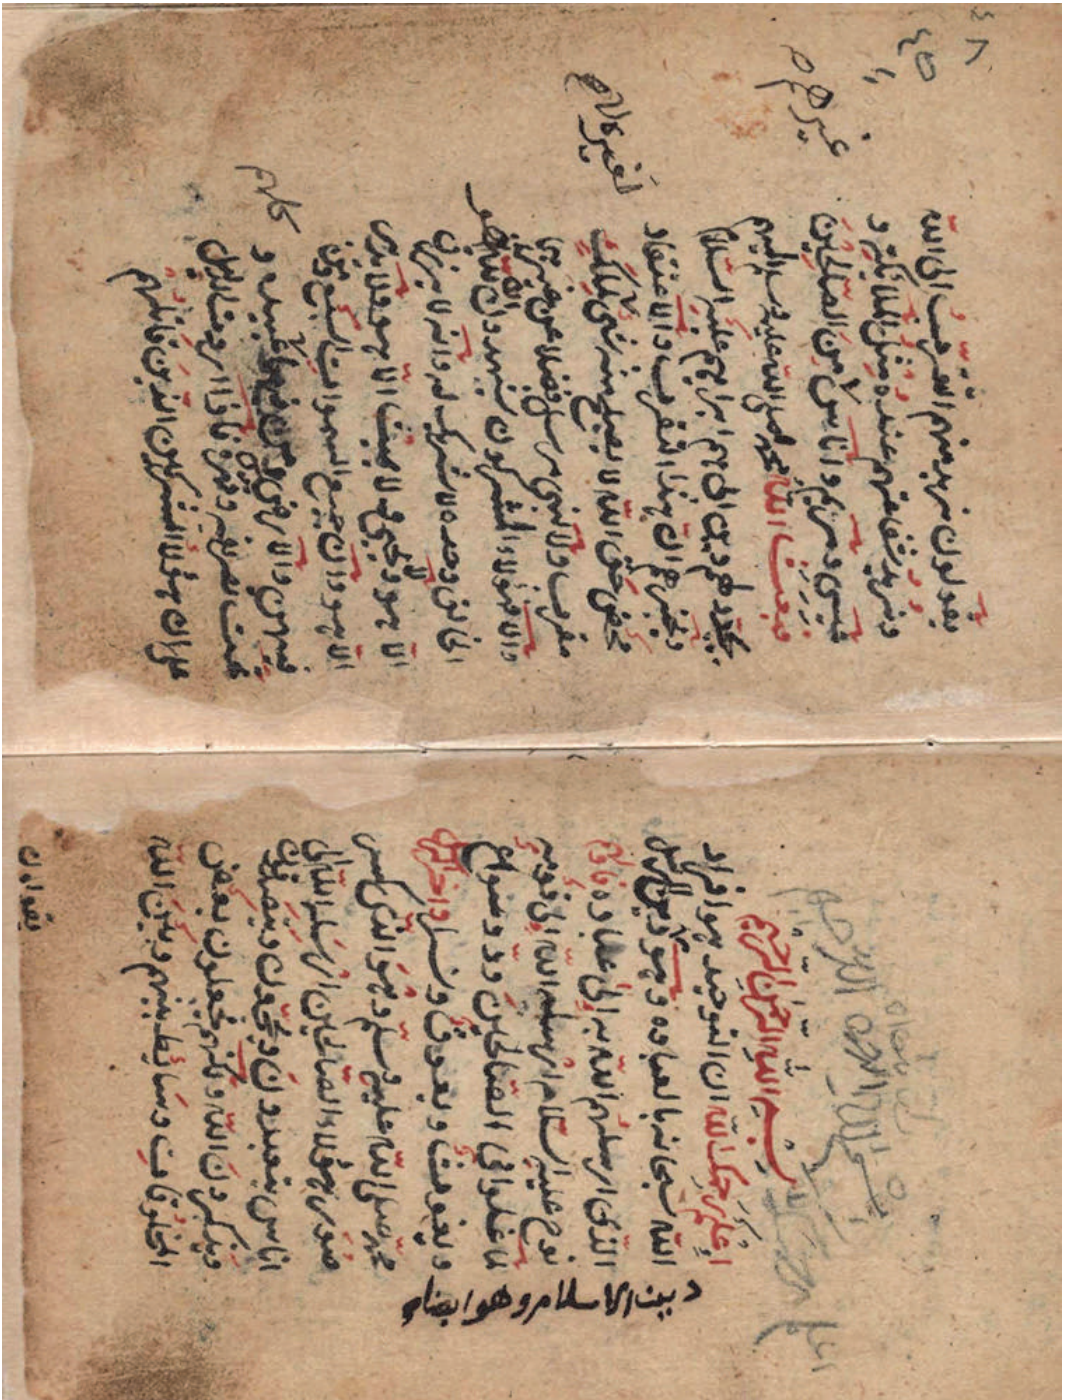 بسم الله الرحمن الرحيم
بسم الله الرحمن الرحيم
اعلم رحمك الله ان التوحيد هو افراد
الله سبحانه بالعباده وهو دين الرسل
الذي ارسلهم الله به الى عباده فاولهم
نوح عليه السلام ارسله الله الى قومه
لما غلوا في الصالحين ود وسواع
ويغوث ويعوق ونسرا واخر الرسل
محمد صلى الله عليه وسلم وهو الذي كسر
صور هؤلاء الصالحين ارسله الله الى
اناس يتعبدون ويحجون ويتصدقون
ويذكرون الله ولكنهم يجعلون بعض
المخلوقات وسائط بينهم وبين الله
يقولون
دين الاسلام وهو
٤٨
٤٥
يقولون نريد منهم التقرب الى الله
ونريد شفاعتهم عنده مثل الملائكة و
عيسى ومريم واناس من الصالحين
غيرهم
فبعث الله محمد صلى الله عليه وسلم اليهم
يجدد لهم دين ابيهم ابراهيم عليه السلام
ويخبرهم ان هذا التقرب والاعتقاد
محض حق الله لا يصلح منه شي لملك
مقرب ولا لنبي مرسل فضلا عن غيرهما
والا فهؤلاء المشركون يشهدون ان الله هو
الخالق وحده لا شريك له وانه لا يرزق
الا هو ولا يحيي ولا يميت الا هو ولا يدبر
الا هو وان جميع السموات السبع ومن
فيهن والارض ومن فيها كلهم عبيده و
تحت تصرفه وقهره فاذا اردت الدليل
على ان هؤلاء المشركين الذين قاتلهم